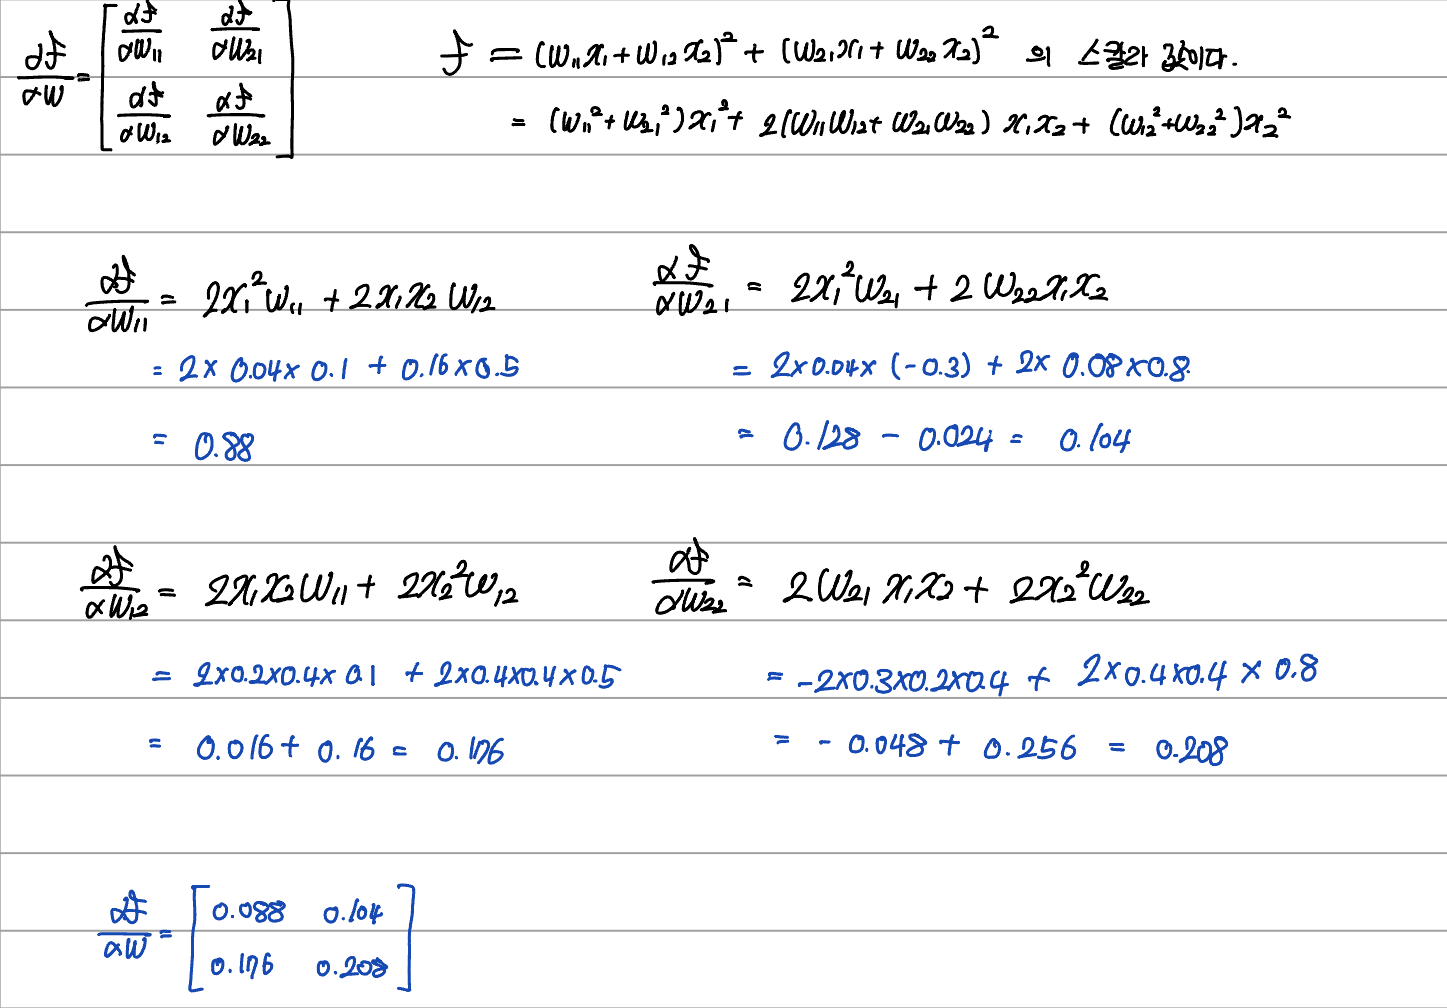 df/dW = [ df/dW₁₁ df/dW₂₁ ; df/dW₁₂ df/dW₂₂ ]
f = (W₁₁x₁ + W₁₂x₂)² + (W₂₁x₁ + W₂₂x₂)² 의 스칼라 값이다.
= (W₁₁² + W₂₁²)x₁² + 2(W₁₁W₁₂ + W₂₁W₂₂) x₁x₂ + (W₁₂² + W₂₂²)x₂²
df/dW₁₁ = 2x₁²W₁₁ + 2x₁x₂W₁₂
= 2 × 0.04 × 0.1 + 0.16 × 0.5
= 0.88
df/dW₂₁ = 2x₁²W₂₁ + 2W₂₂x₁x₂
= 2×0.04×(-0.3) + 2× 0.08×0.8
= 0.128 - 0.024 = 0.104
df/dW₁₂ = 2x₁x₂W₁₁ + 2x₂²W₁₂
= 2×0.2×0.4×0.1 + 2×0.4×0.4×0.5
= 0.016 + 0.16 = 0.176
df/dW₂₂ = 2W₂₁x₁x₂ + 2x₂²W₂₂
= -2×0.3×0.2×0.4 + 2×0.4×0.4×0.8
= -0.048 + 0.256 = 0.208
df/dW = [ 0.088 0.104 ; 0.176 0.208 ]